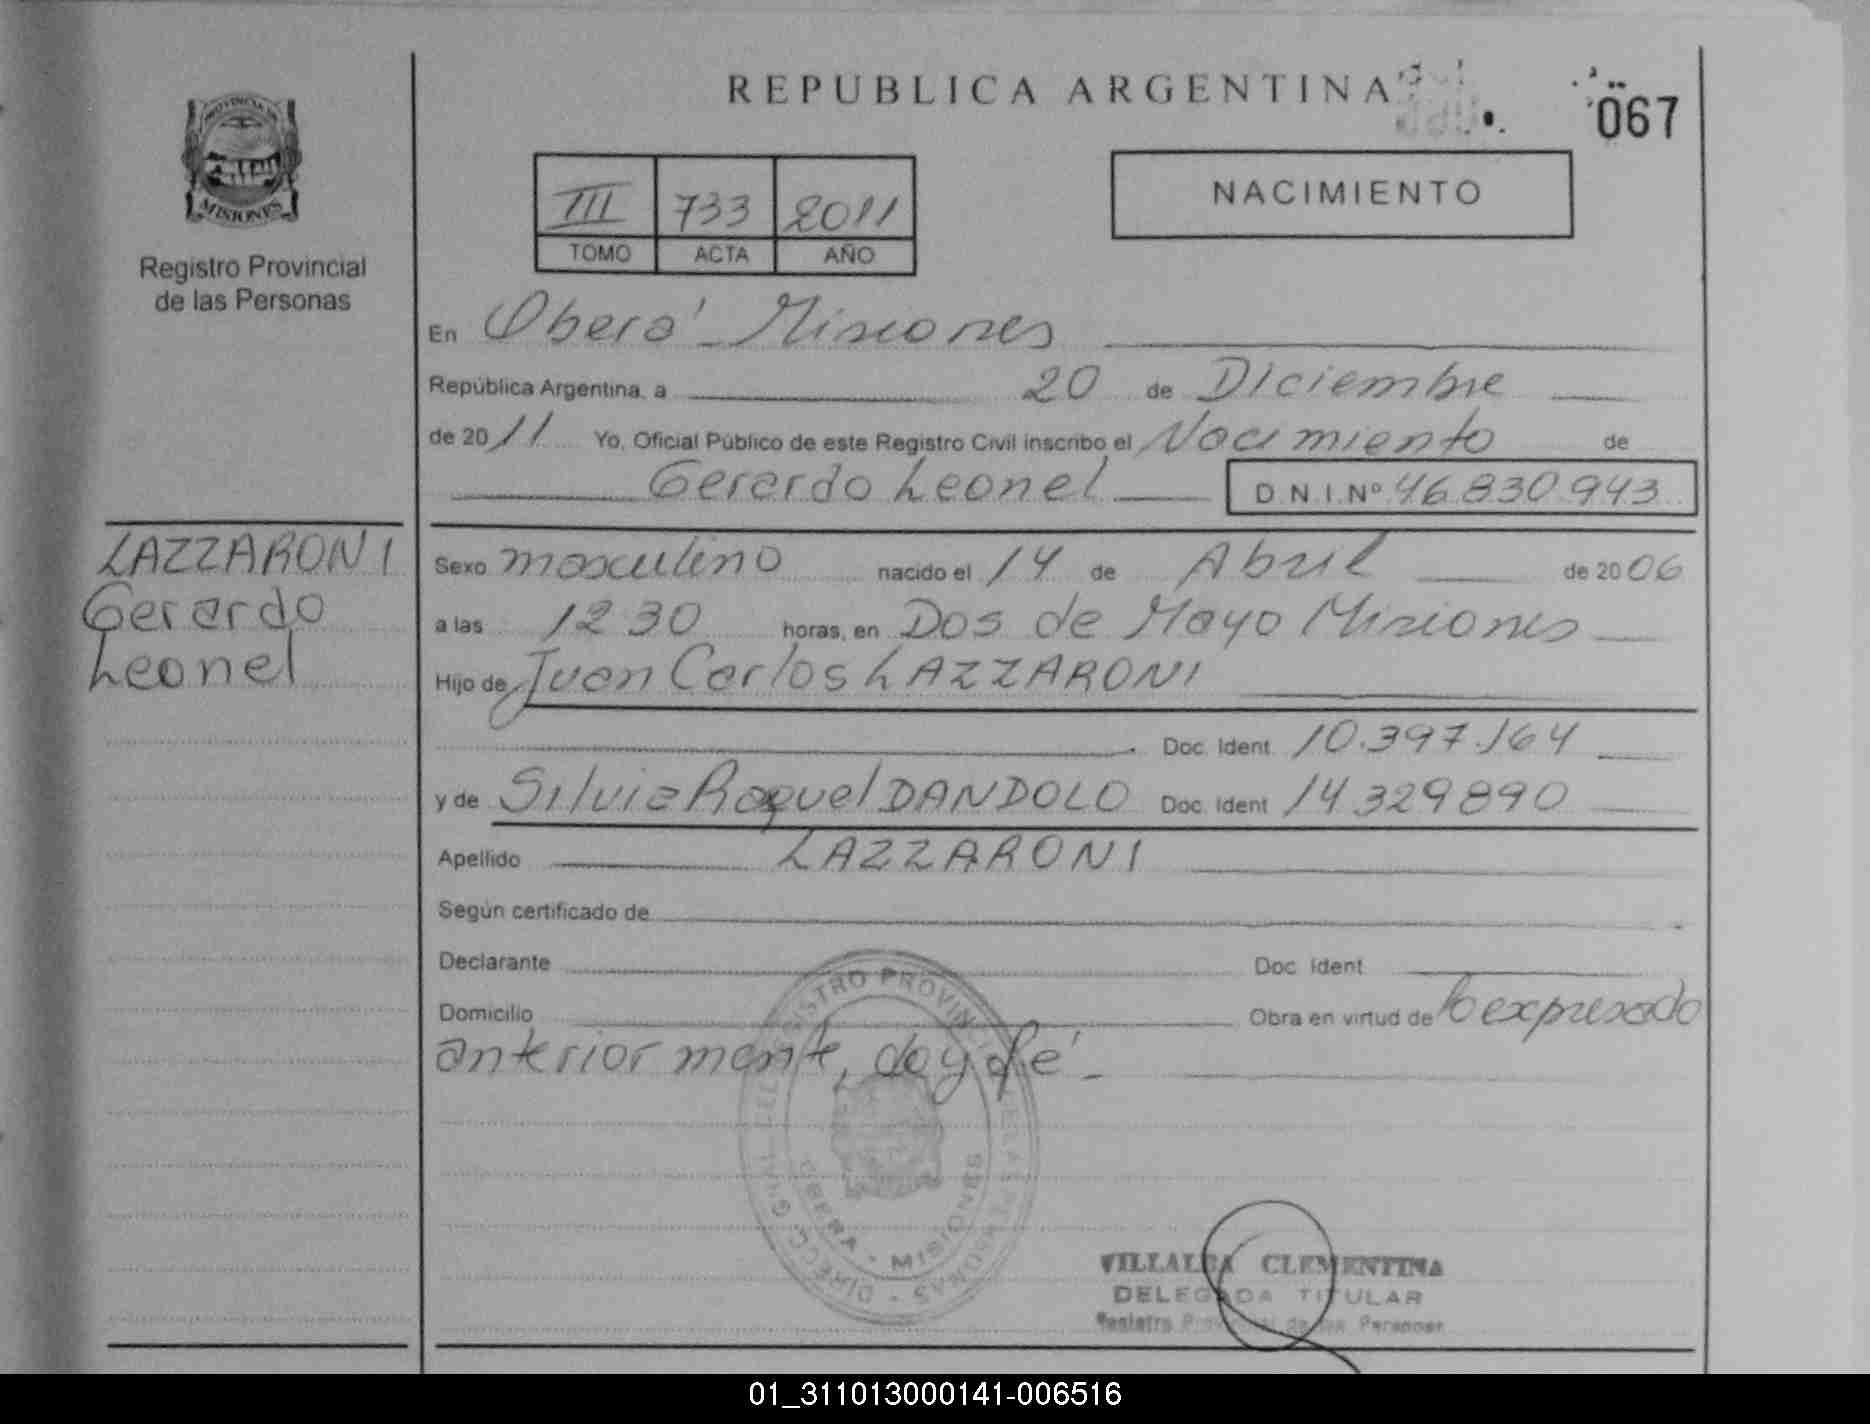 REPUBLICA ARGENTINA
067
PROVINCIA DE
MISIONES
Registro Provincial
de las Personas
III 733 2011
TOMO ACTA AÑO
NACIMIENTO
En Oberá - Misiones
República Argentina, a 20 de Diciembre
de 2011 Yo, Oficial Público de este Registro Civil inscribo el Nacimiento de
Gerardo Leonel D.N.I.Nº 46.830.943
LAZZARONI
Gerardo
Leonel
Sexo masculino nacido el 14 de Abril de 2006
a las 12 30 horas, en Dos de Mayo Misiones
Hijo de Juan Carlos LAZZARONI
Doc. Ident. 10.397.164
y de Silvia Raquel DANDOLO Doc. Ident 14 329 890
Apellido LAZZARONI
Según certificado de
Declarante Doc. Ident
Domicilio Obra en virtud de lo expresado
anteriormente, doy fé -
DIRECC. GRAL. DEL REGISTRO PROVINCIAL DE LAS PERSONAS
OBERA - MISIONES
VILLALBA CLEMENTINA
DELEGADA TITULAR
Registro Provincial de las Personas
01_311013000141-006516